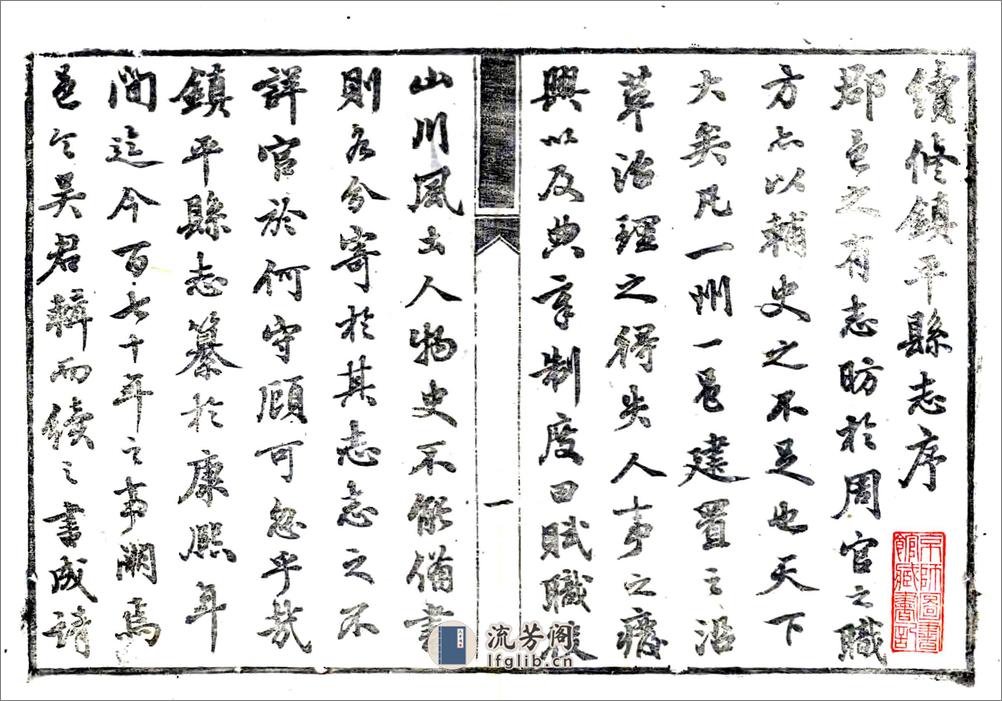 續修鎮平縣志序
郡邑之有志昉於周官之職
方亦以輔史之不足也天下
大矣凡一州一邑建置之沿
革治理之得失人事之廢
興以及典章制度田賦職
山川風土人物史不能備書
則各分寄於其志志之不
詳官於何守顧可忽乎哉
鎮平縣志纂於康熙年
間迄今百七十年之事闕焉
邑令吳君輯而續之書成請
一
京師圖書
館藏書記
流芳阁
lfglib.cn